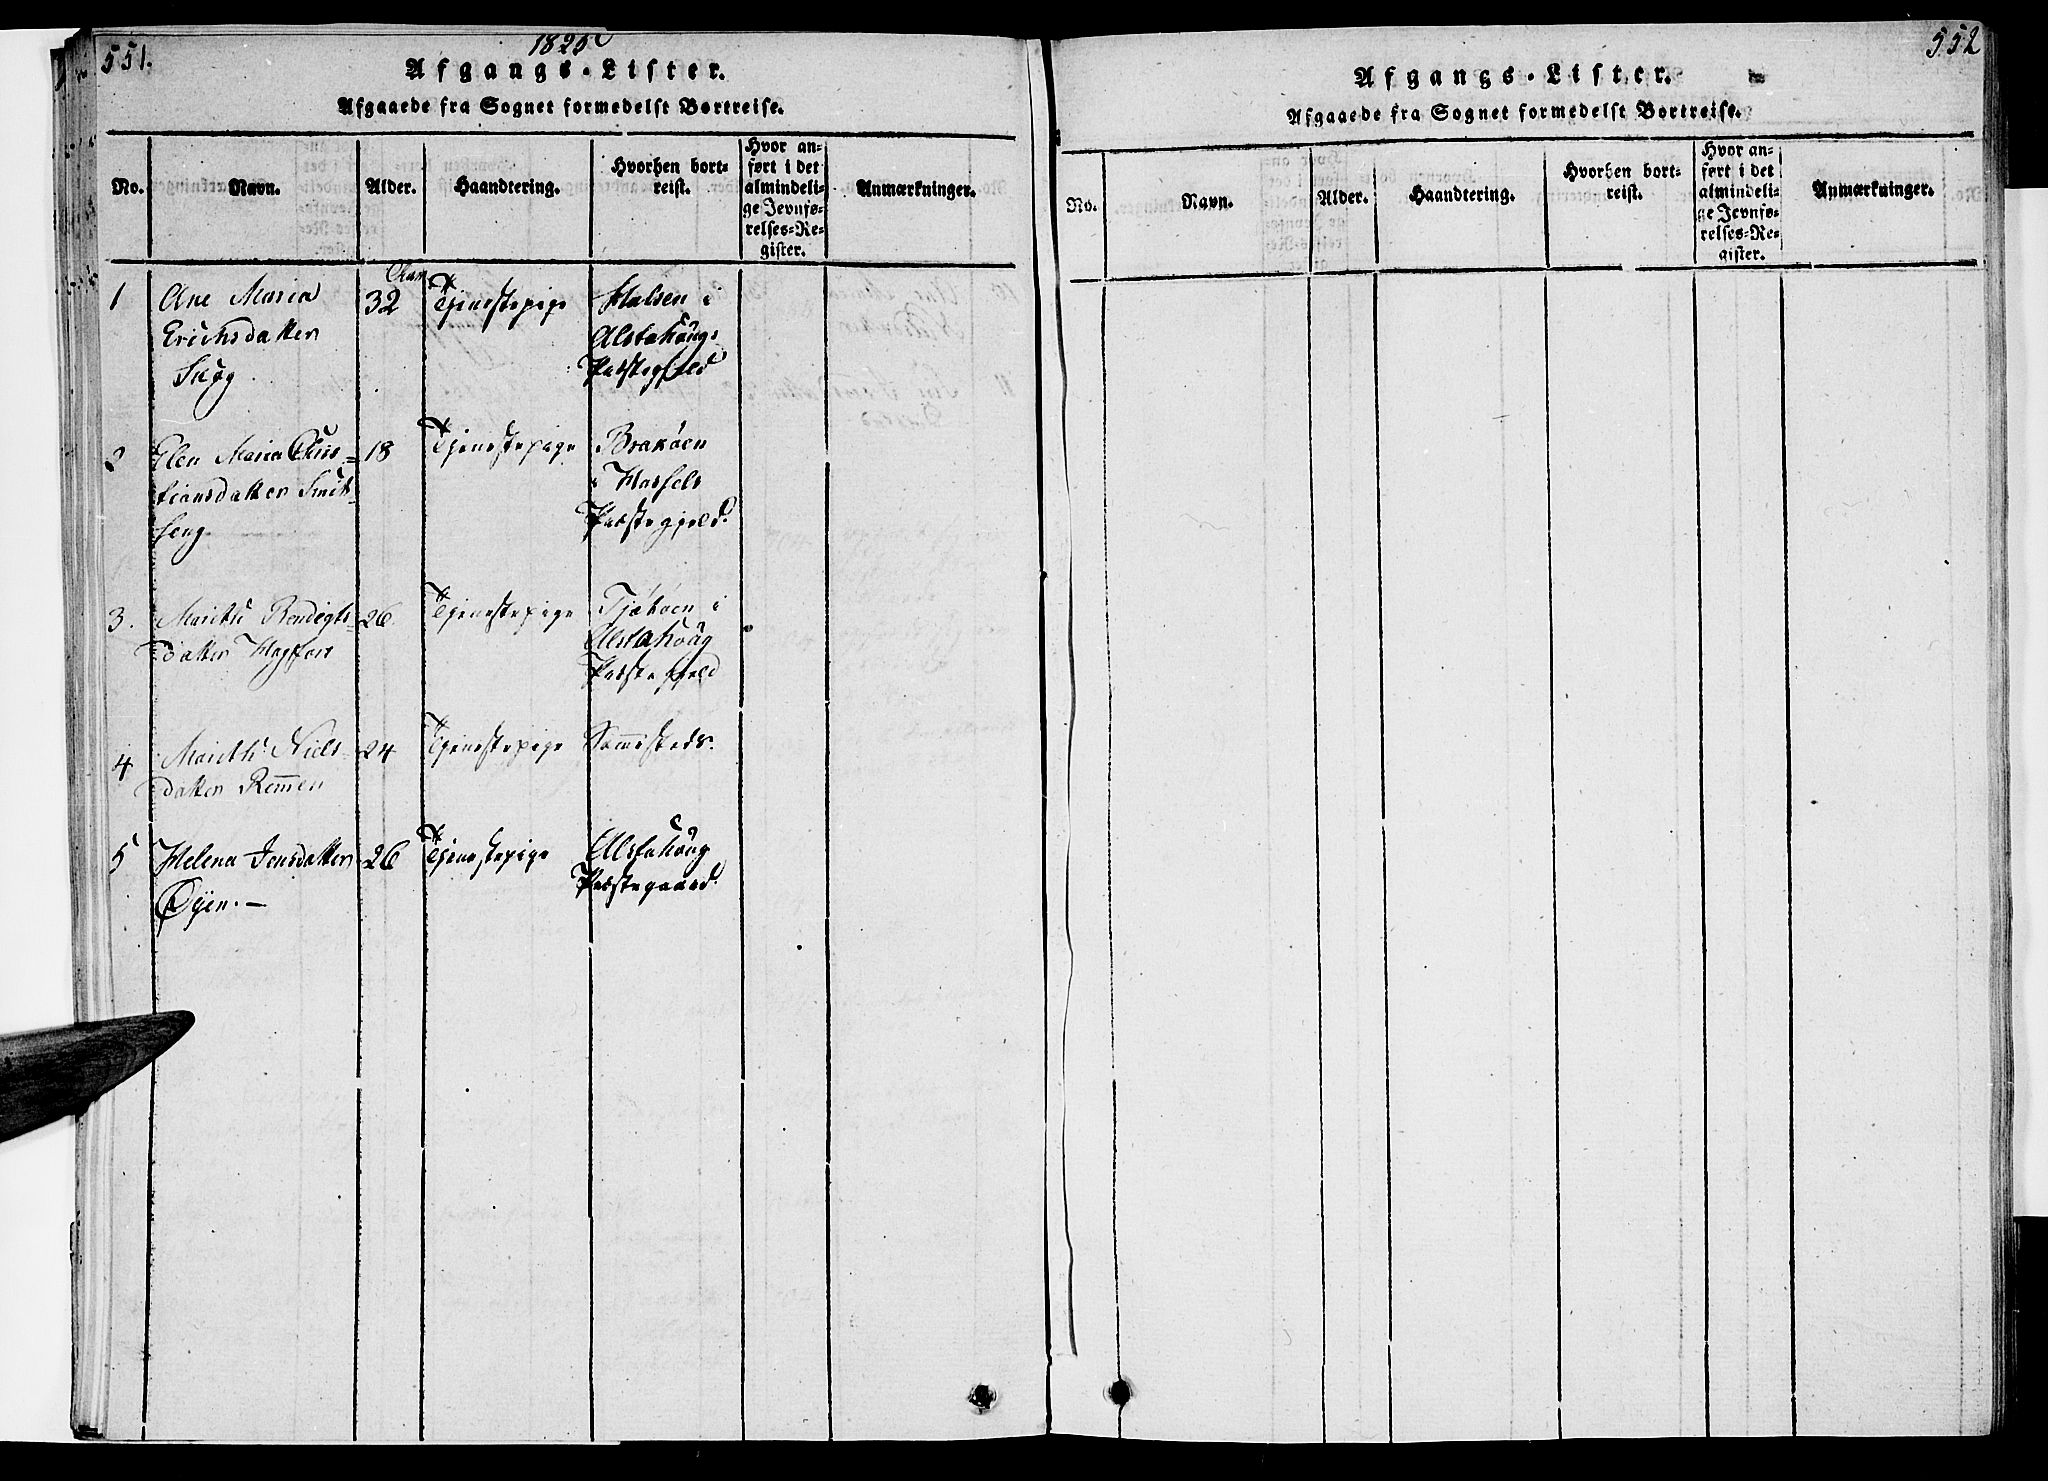 551.
1825
Afgangs-Lister.
Afgaaede fra Sognet formedelst Bortreise.
No. Navn. Alder. Haandtering. Hvorhen bortreist. Hvor anført i det almindelige Jevnførelses-Register. Anmærkninger.
1 Ane Maria 32 Tjenestepige Halsen i
Erichsdatter Alstahoug
Skog Præstegjeld
2 Elen Maria Chris= 18 Tjenestepige
tiansdatter i Hassels
Præstegjeld.
3. Marith Bendigts= 26 Tjenestepige Tjøtøen i
datter Alstahoug
Præstegjeld
4 Marith Niels 24 Tjenestepige Sammesteds.
datter Remmen
5 Helena Jensdatter 26 Tjenestepige Alstahoug
Øyen. — Præstegaard.
552
Afgangs-Lister.
Afgaaede fra Sognet formedelst Bortreise.
No. Navn. Alder. Haandtering. Hvorhen bortreist. Hvor anført i det almindelige Jevnførelses-Register. Anmærkninger.